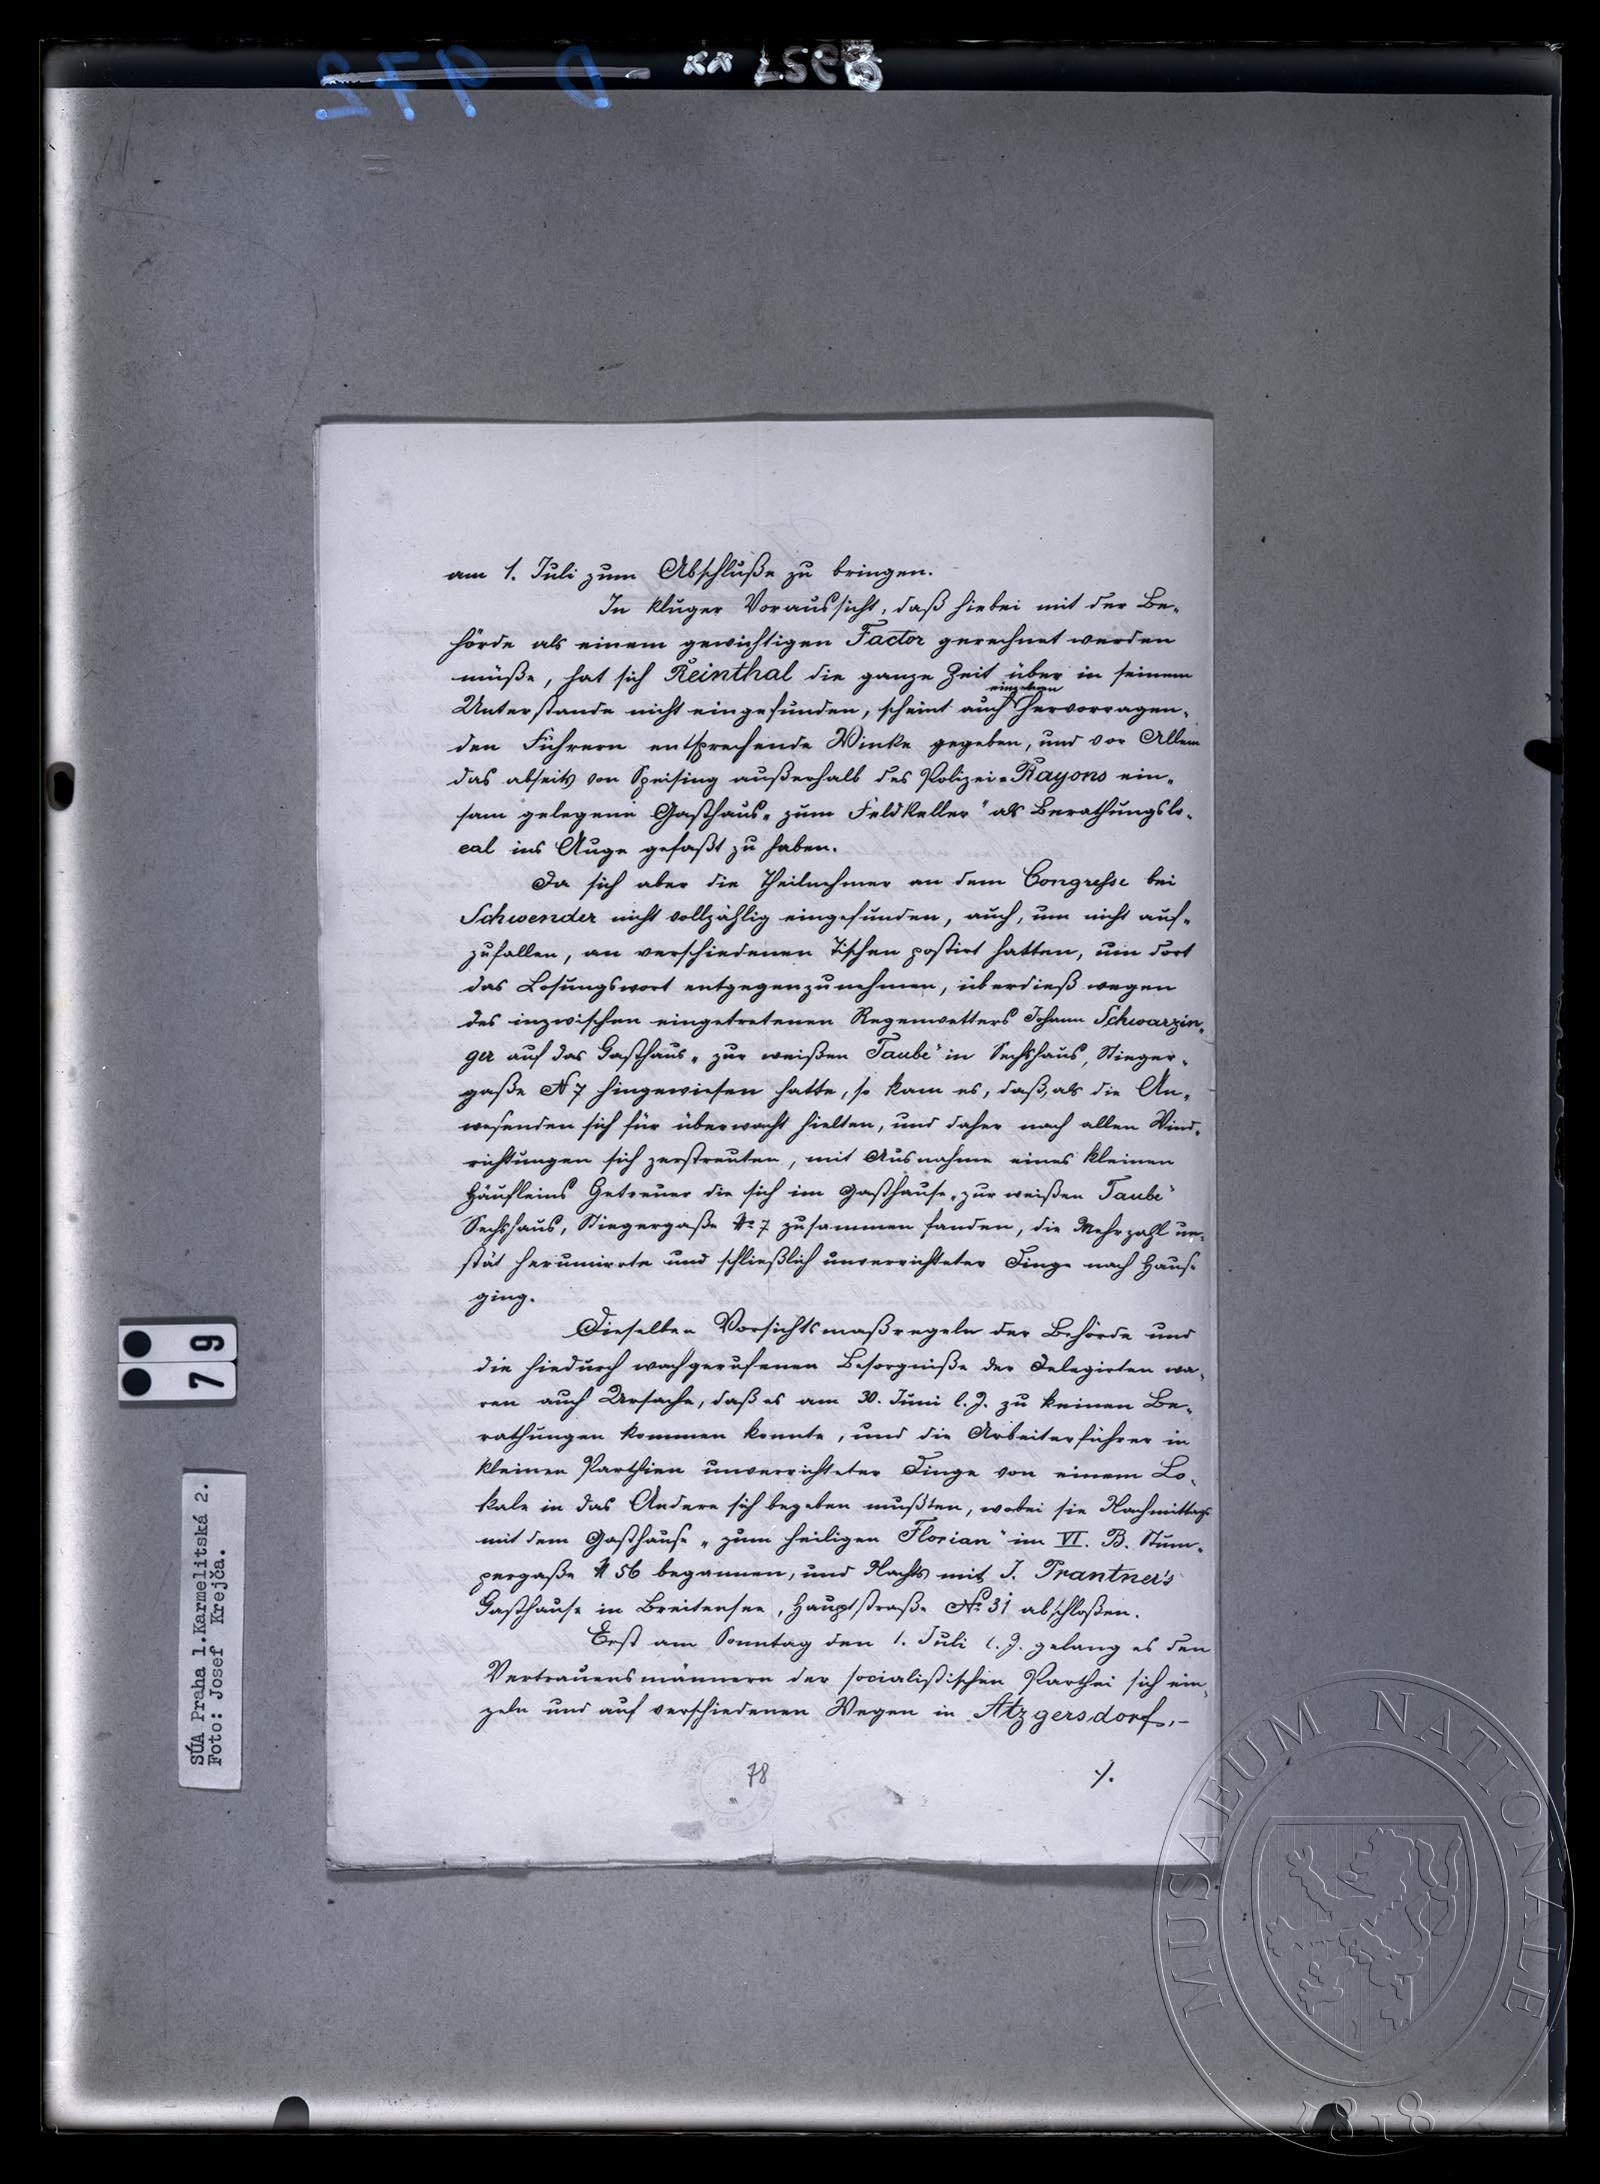 D 972
am 1. Juli zum Abschluße zu bringen.
In kluger Voraussicht, daß hiebei mit der Be-
hörde als einem gewichtigen Factor gerechnet werden
müße, hat sich Reinthal die ganze Zeit über in seinem
einzelnen
Unterstande nicht eingefunden, scheint auch hervorragen-
den Führern entsprechende Winke gegeben, und vor Allem
das abseits von Speising außerhalb des Polizei-Rayons ein-
sam gelegene Gasthaus „zum Feldkeller" als Berathungslo-
cal ins Auge gefaßt zu haben.
Da sich aber die Theilnehmer an dem Congresse bei
Schwender nicht vollzählig eingefunden, auch, um nicht auf-
zufallen, an verschiedenen Tischen postirt hatten, um dort
das Losungswort entgegenzunehmen, überdieß wegen
des inzwischen eingetretenen Regenwetters Johann Schwarzin-
ger auf das Gasthaus „zur weißen Taube" in Sechshaus, Stieger-
gaße N 7 hingewiesen hatte, so kam es, daß, als die An-
wesenden sich für überwacht hielten, und daher nach allen Wind-
richtungen sich zerstreuten, mit Ausnahme eines kleinen
Häufleins Getreuer die sich im Gasthause „zur weißen Taube"
Sechshaus, Stiegergaße No 7 zusammen fanden, die Mehrzahl un-
stät herumirrte und schließlich unverrichteter Dinge nach Hause
ging.
Dieselben Vorsichtsmaßregeln der Behörde und
die hiedurch wachgerufenen Besorgniße der Delegirten wa-
ren auch Ursache, daß es am 30. Juni l. J. zu keinen Be-
rathungen kommen konnte, und die Arbeiterführer in
kleinen Parthien unverrichteter Dinge von einem Lo-
kale in das Andere sich begeben mußten, wobei sie Nachmittags
mit dem Gasthause „zum heiligen Florian" im VI. B. Stum-
pergaße N 56 begannen, und Nachts mit J. Prantner's
Gasthause in Breitensee, Hauptstraße No 31 abschloßen.
Erst am Sonntag den 1. Juli l. J. gelang es den
Vertrauensmännern der socialistischen Parthei sich ein-
zeln und auf verschiedenen Wegen in Atzgersdorf,-
78
./.
79
SÚA Praha 1.Karmelitská 2.
Foto: Josef Krejča.
MUSAEUM NATIONALE
1818